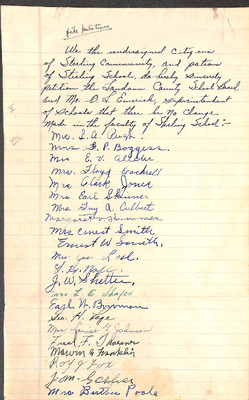 file petitions.
We the undersigned citizens
of Sterling Community, and patrons
of Sterling School, do hereby sincerely
petition the Loudoun County School Board
and Mr. O. L. Emerick, Superintendent
of Schools that there be No Change
Made in the faculty of Sterling School:-
Mrs. S. A. Pugh.
Mrs. F. P. Boggess.
Mrs E. V.
Mrs. Floyd Cockrell
Mrs Clark Jones
Mrs Earl Skinner
Mrs. Guy A. Culbert
Margaret V. Hummer
Mrs Ernest Smith
Ernest W Smith.
Mrs. Geo.
J. W.
Mrs L. B. Shafer
Earl W.
Geo. H. Page
Mrs Johnson
Fred F.
Marvin A Franklin
Roy J Fox
Mrs Bertha Poole